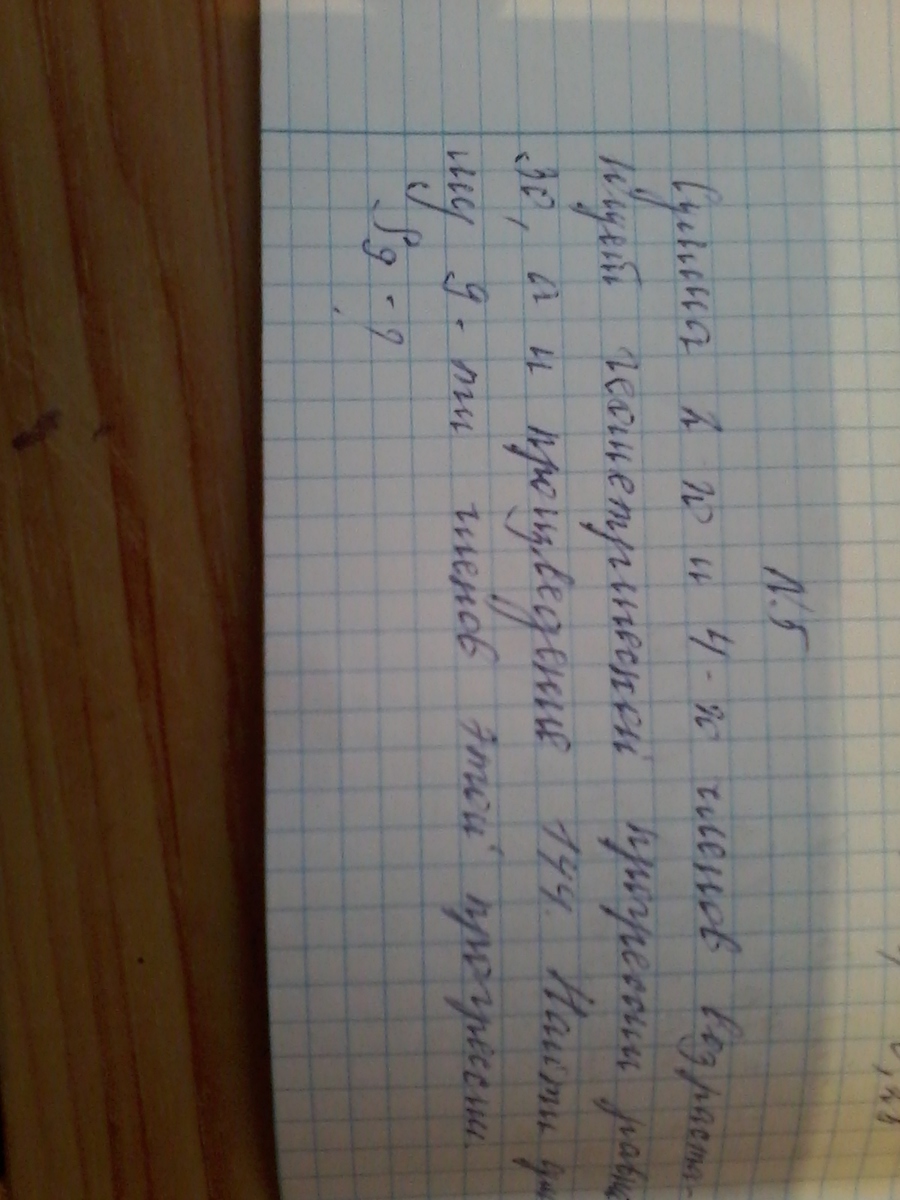 N.5
Сумма 2 го и 4-го членов возраста-
ющей геометрической прогрессии равна
30, а и произведение 144. Найти сум
му 9-ти членов этой прогрессии.
S9 - ?